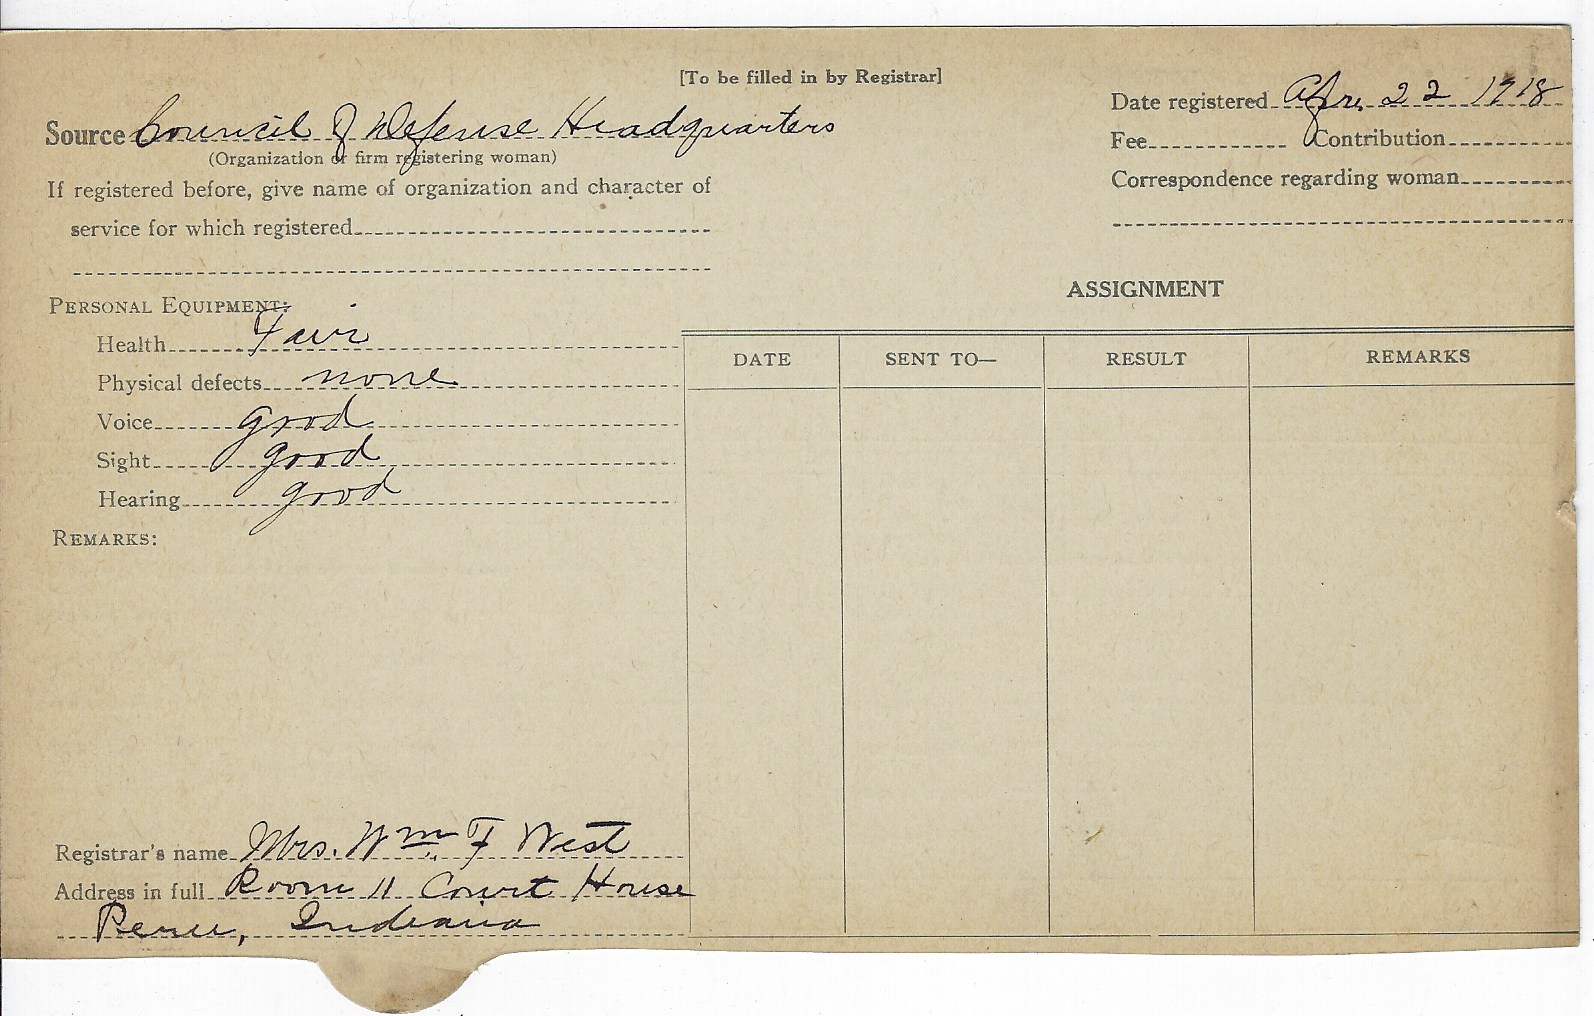 [To be filled in by Registrar]
Source Council of Defense Headquarters
(Organization or firm registering woman)
If registered before, give name of organization and character of
service for which registered
Date registered Apr. 22 1918
Fee Contribution
Correspondence regarding woman
PERSONAL EQUIPMENT:
Health Fair
Physical defects none
Voice good
Sight good
Hearing good
REMARKS:
ASSIGNMENT
DATE SENT TO— RESULT REMARKS
Registrar's name Mrs. Wm. F West
Address in full Room 11 Court House
Peru, Indiana